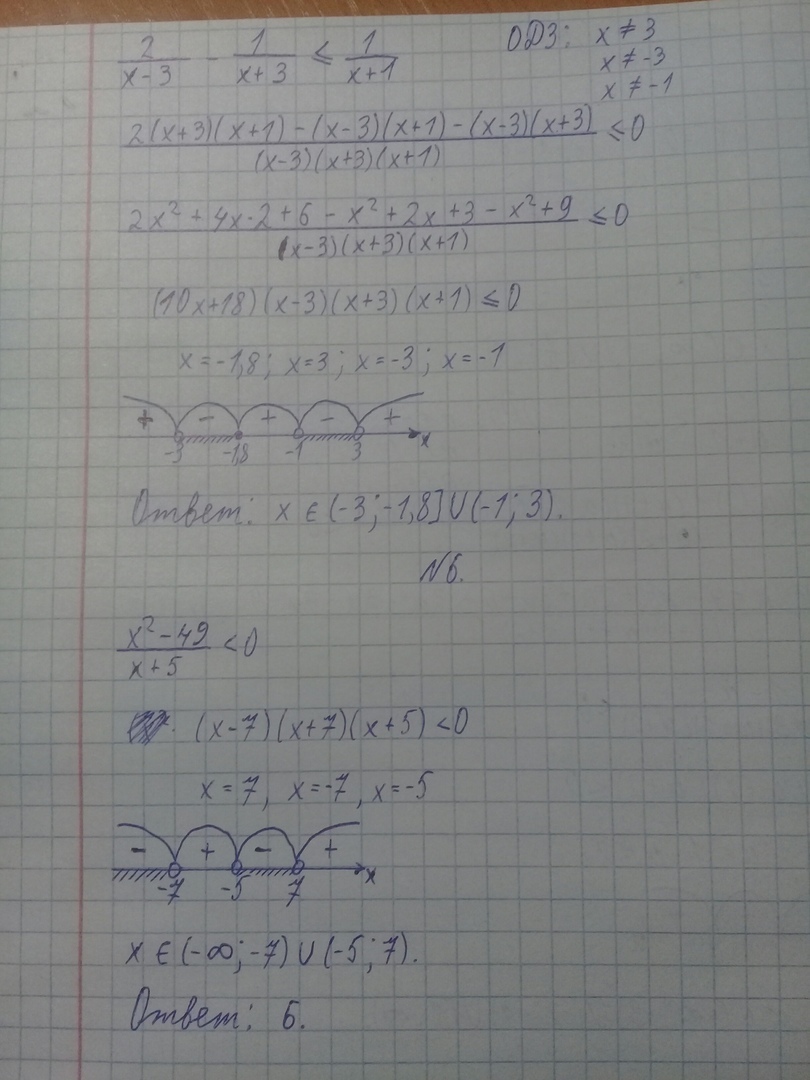 2/(x-3) - 1/(x+3) ≤ 1/(x+1) ОДЗ: x ≠ 3
x ≠ -3
x ≠ -1
(2(x+3)(x+1) - (x-3)(x+1) - (x-3)(x+3))/((x-3)(x+3)(x+1)) ≤ 0
(2x² + 4x·2 + 6 - x² + 2x + 3 - x² + 9)/((x-3)(x+3)(x+1)) ≤ 0
(10x+18)(x-3)(x+3)(x+1) ≤ 0
x = -1,8; x=3; x=-3; x=-1
+ - + - +
-3 -1,8 -1 3 x
Ответ: x ∈ (-3; -1,8] U (-1; 3).
N6.
(x² - 49)/(x+5) < 0
(x-7)(x+7)(x+5) < 0
x = 7, x = -7, x = -5
- + - +
-7 -5 7 x
x ∈ (-∞; -7) U (-5; 7).
Ответ: 6.